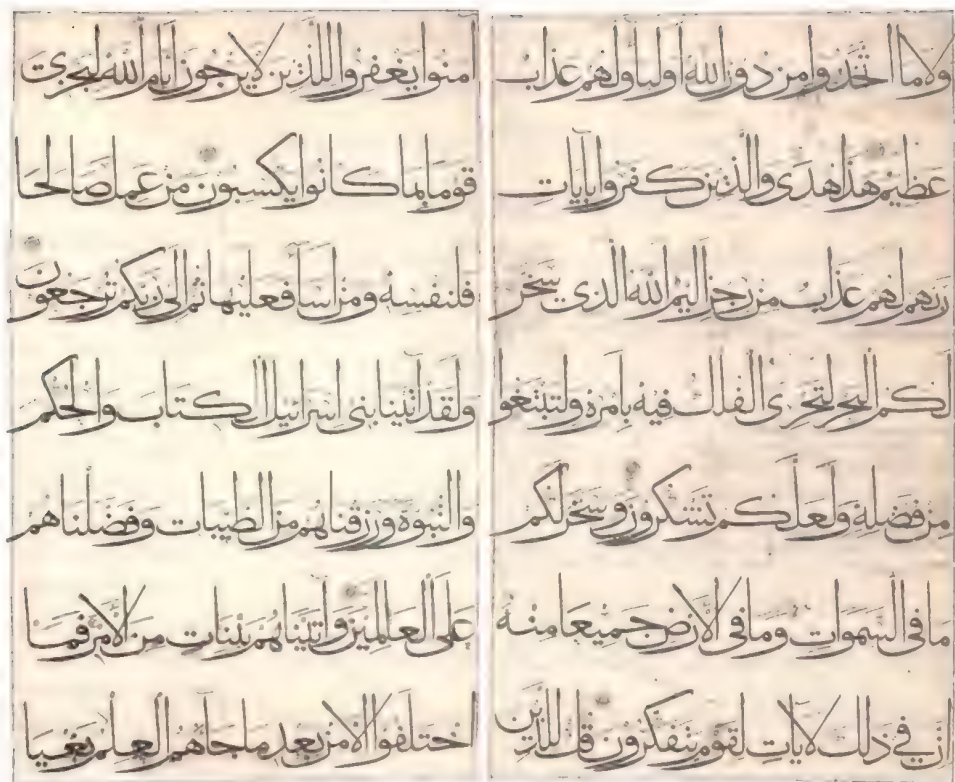 ولا ما اتخذوا من دون الله اوليا ولهم عذاب
عظيم هذا هدى والذين كفروا بآيات
ربهم لهم عذاب من رجز اليم الله الذي سخر
لكم البحر لتجري الفلك فيه بامره ولتبتغوا
من فضله ولعلكم تشكرون وسخر لكم
ما في السموات وما في الارض جميعا منه
ان في ذلك لآيات لقوم يتفكرون قل للذين
آمنوا يغفروا للذين لا يرجون ايام الله ليجزي
قوما بما كانوا يكسبون من عمل صالحا
فلنفسه ومن اسا فعليها ثم الى ربكم ترجعون
ولقد آتينا بني اسرائيل الكتاب والحكم
والنبوة ورزقناهم من الطيبات وفضلناهم
على العالمين وآتيناهم بينات من الامر فما
اختلفوا الا من بعد ما جاهم العلم بغيا